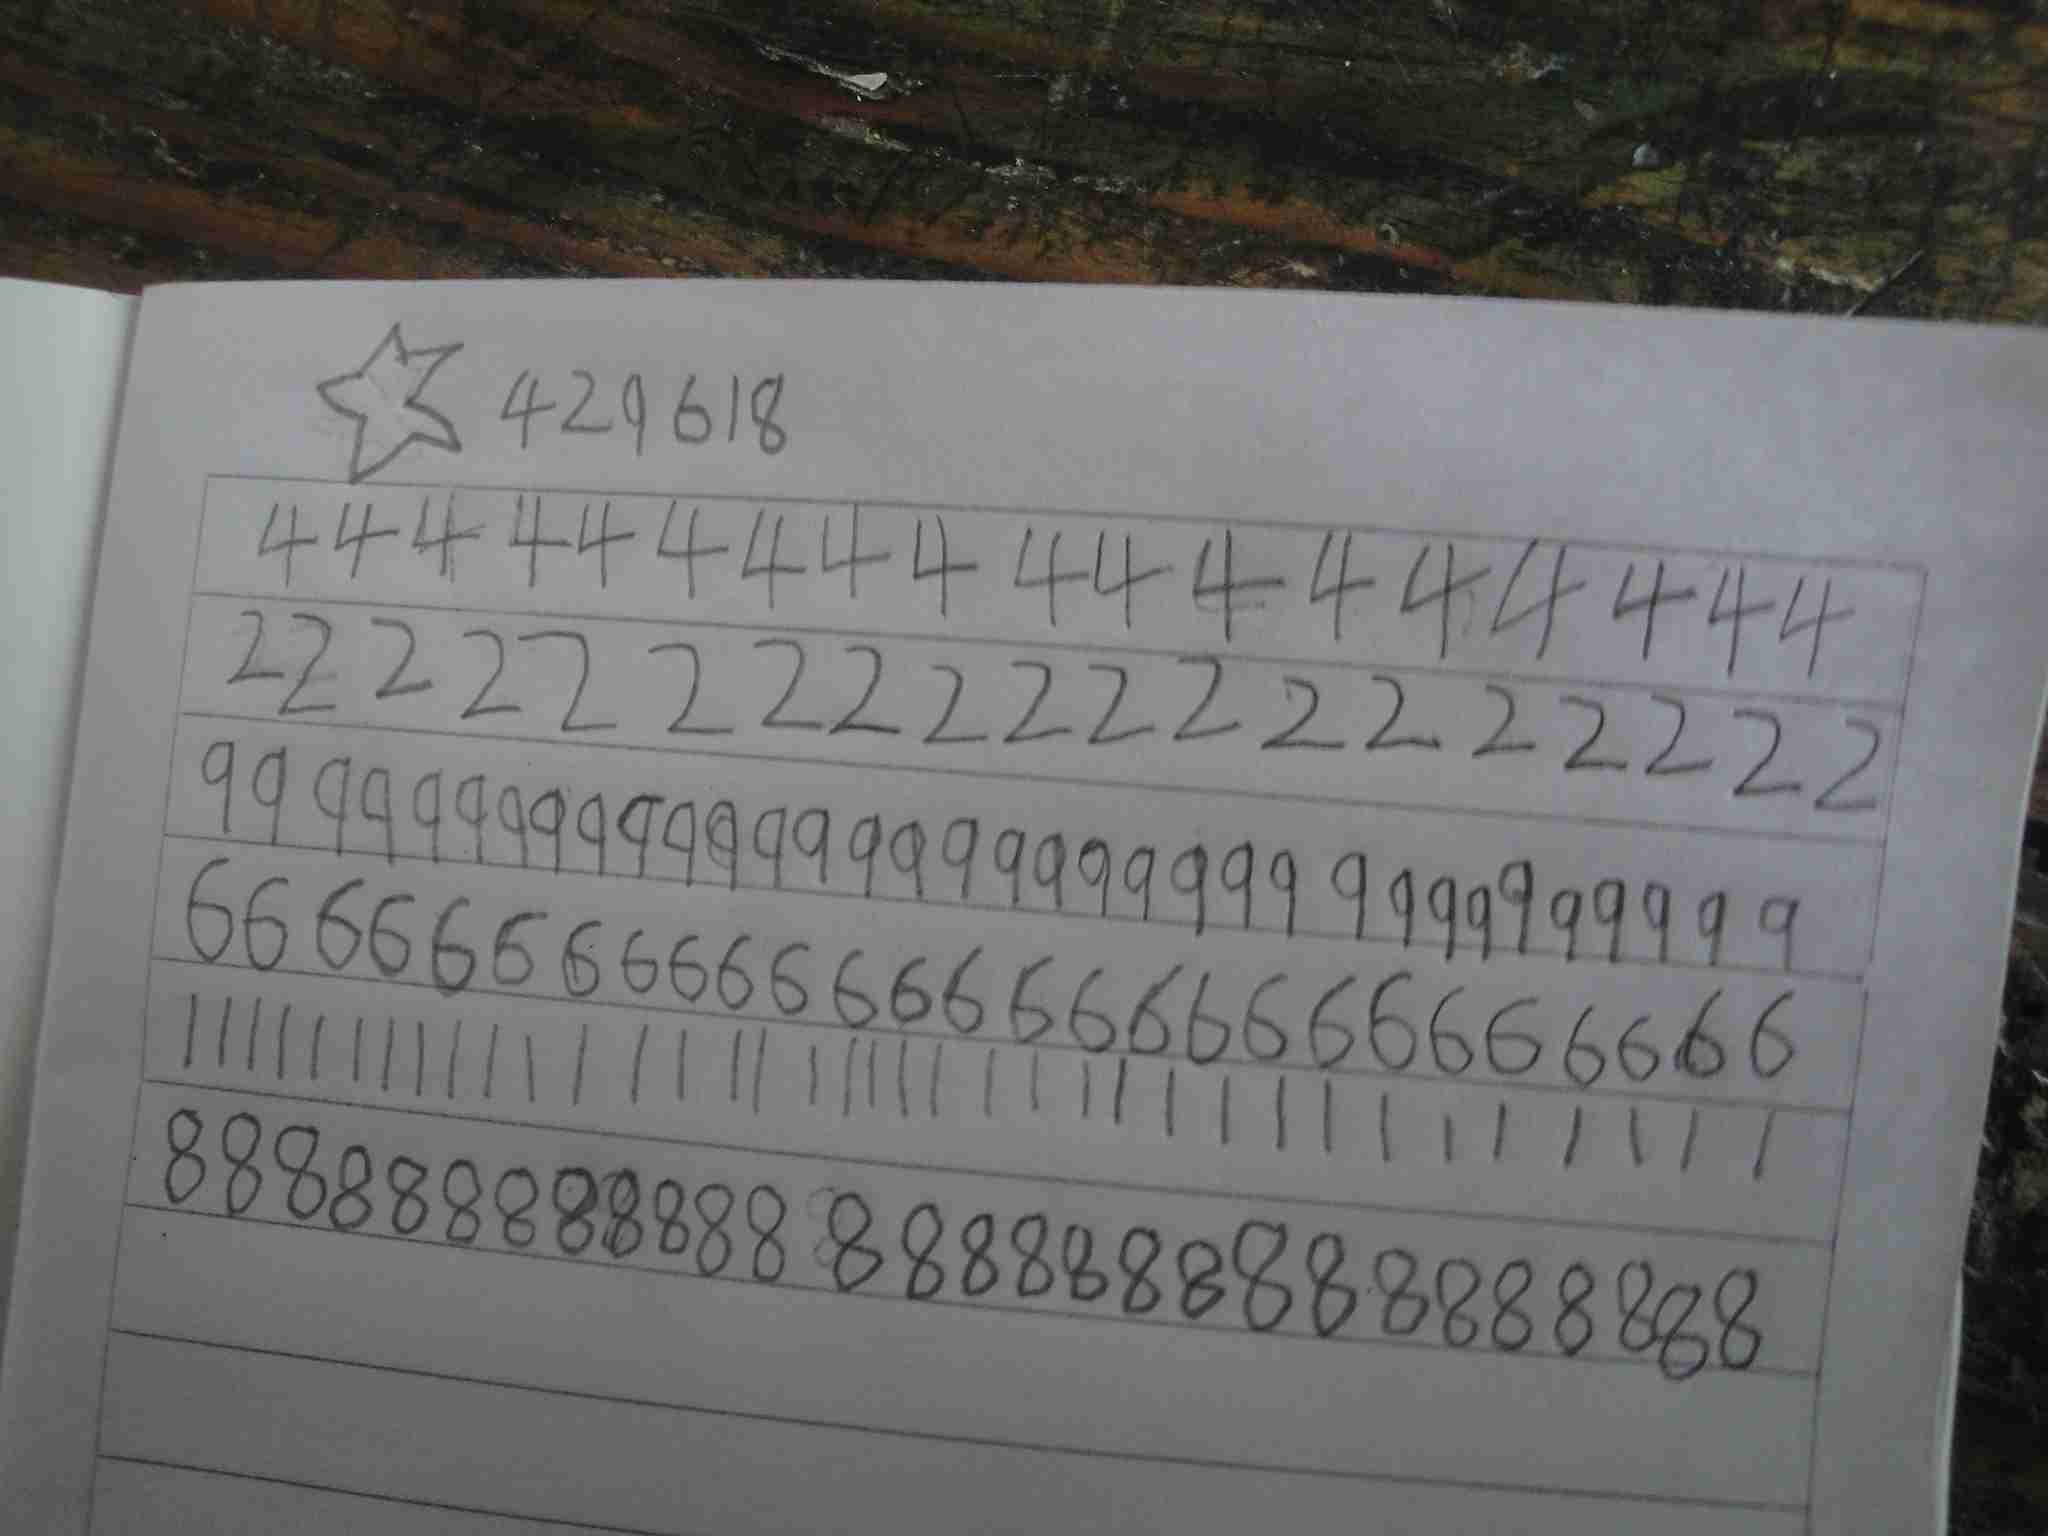 429618
444444444444444444
2222222222222222222
9999999999999999999999999999999999
666666666666666666666666666
111111111111111111111111111111111111
8888888888888888888888888888